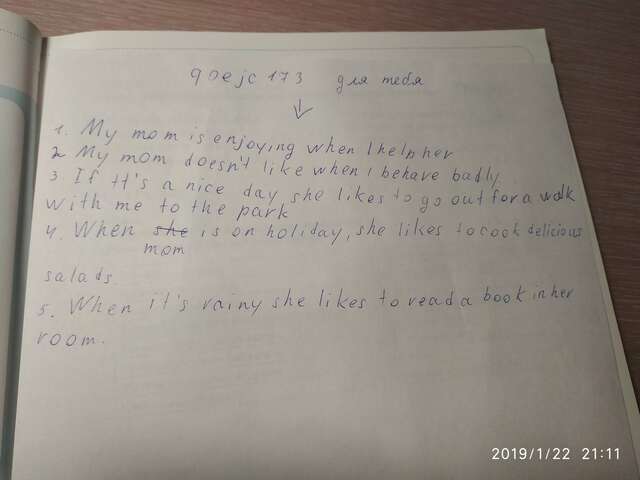 qoejc173 для тебя
1. My mom is enjoying when I help her
2 My mom doesn't like when i behave badly.
3 If it's a nice day she likes to go out for a walk
with me to the park
4. When she is on holiday, she likes to cook delicious
mom
salads.
5. When it's rainy she likes to read a book in her
room.
2019/1/22 21:11